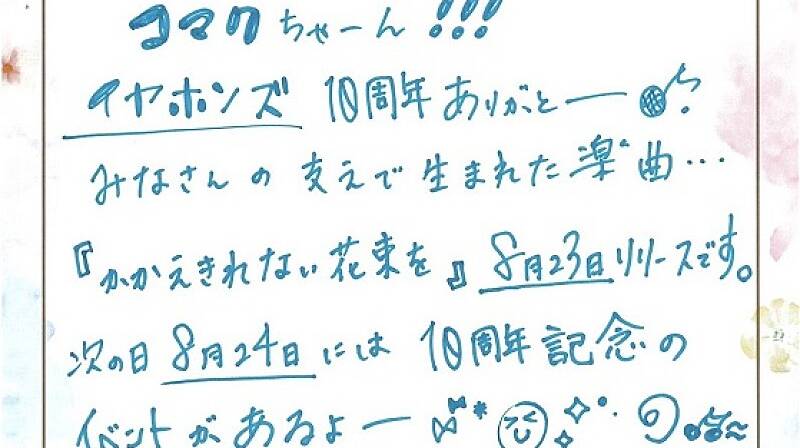 コマクちゃーん!!!
イヤホンズ 10周年ありがとー
みなさんの支えで生まれた楽曲…
『かかえきれない花束を』8月23日リリースです。
次の日8月24日には10周年記念の
イベントがあるよー